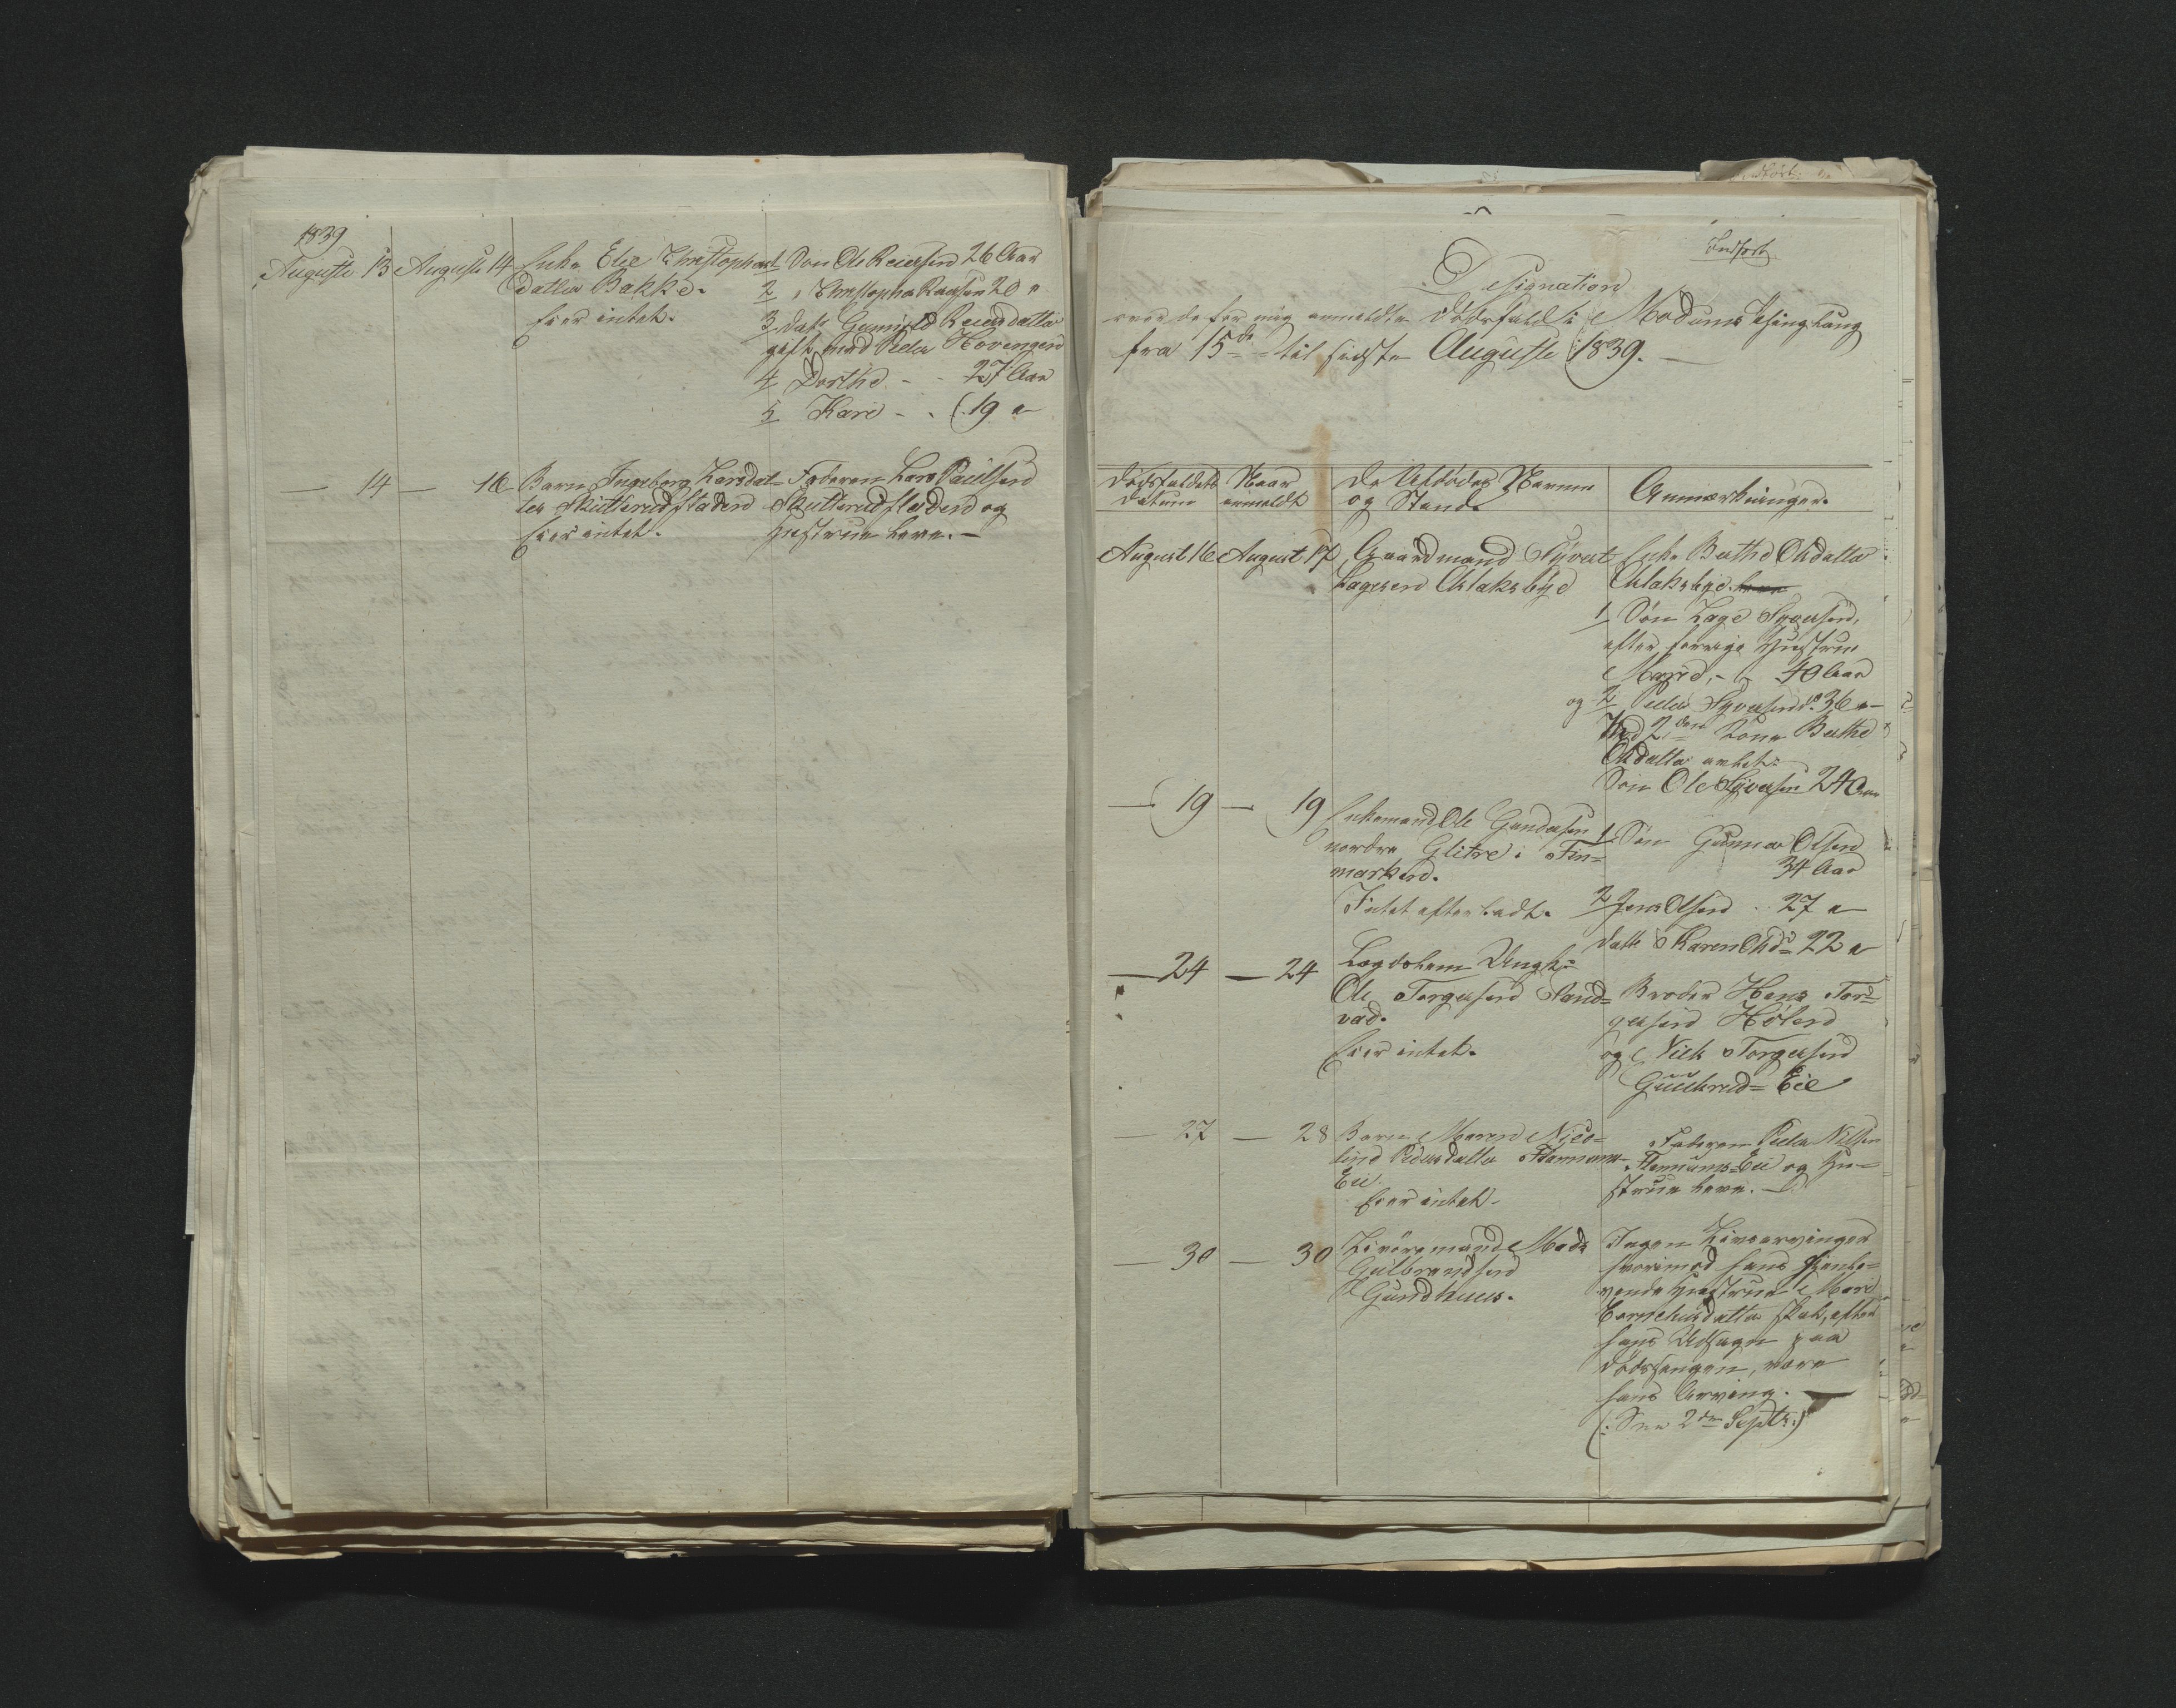 1839
Auguste 13 Auguste 14 Enke Elie Christophers
datter Bakke.
Eier intet.
1 Søn Ole Reiersen 26 Aar
2 " Christopher Reiersen 20 "
3 Datt Gunild Reiersdatter
gift med Peder Hovengen
4 Dorthe - - 27 Aar
5 Kari - - 19 "
— 14 — 16 Barn Ingeborg Larsdat-
ter Skutterudfladen
Eier intet.
Faderen Lars Paulsen
Skutterudfladen og
Hustrue leve. —
Indført
Designation
over de for mig anmeldte Dødsfald i Modums Thinglaug
fra 15de til sidste Auguste 1839. —
Dødsfaldets
Datum
Naar
anmeldt
De Afdødes Navne
og Stand.
Anmærkninger.
August 16 August 17 Gaardmand Syvert
Lagesen Aslaksbye
Enke Berthe Olsdatter
Aslaksbye.
1 Søn Lage Syversen,
efter forrige Hustrue
Marie, - - 40 Aar
og 2 Peder Syversen 36 "
Med 2den Kone Berthe
Olsdatter avlet:
Søn Ole Syversen 24 Aar
— 19 — 19 Enkemand Ole Gundersen
nordre Glitre i Fin-
marken.
Intet efterladt.
1 Søn Gunner Olsen
34 Aar
2 Jens Olsen - 27 "
Datt Karen Olsd 22 "
— 24 — 24 Lægdslem Ungk:
Ole Torgersen Sand-
vad.
Eier intet.
Broder Hans Tor-
gersen Hølen
og Niels Torgersen
Guulsrud-Eie
— 27 — 28 Barn Maren Nico-
line Pedersdatter Stannums-
Eie.
Eier intet.
Faderen Peder Nilsen
Stannums-Eie og Hu-
strue leve. —
— 30 — 30 Livøremand Mads
Gulbrandsen
Gundhuus.
Ingen Livsarvinger
hvorimod hans gienle-
vende Hustrue Mari
Corneliusdatter skal, efter
hans Udsagn paa
Dødssengen, være
hans Arving. —
(: Den 2den Septr:)